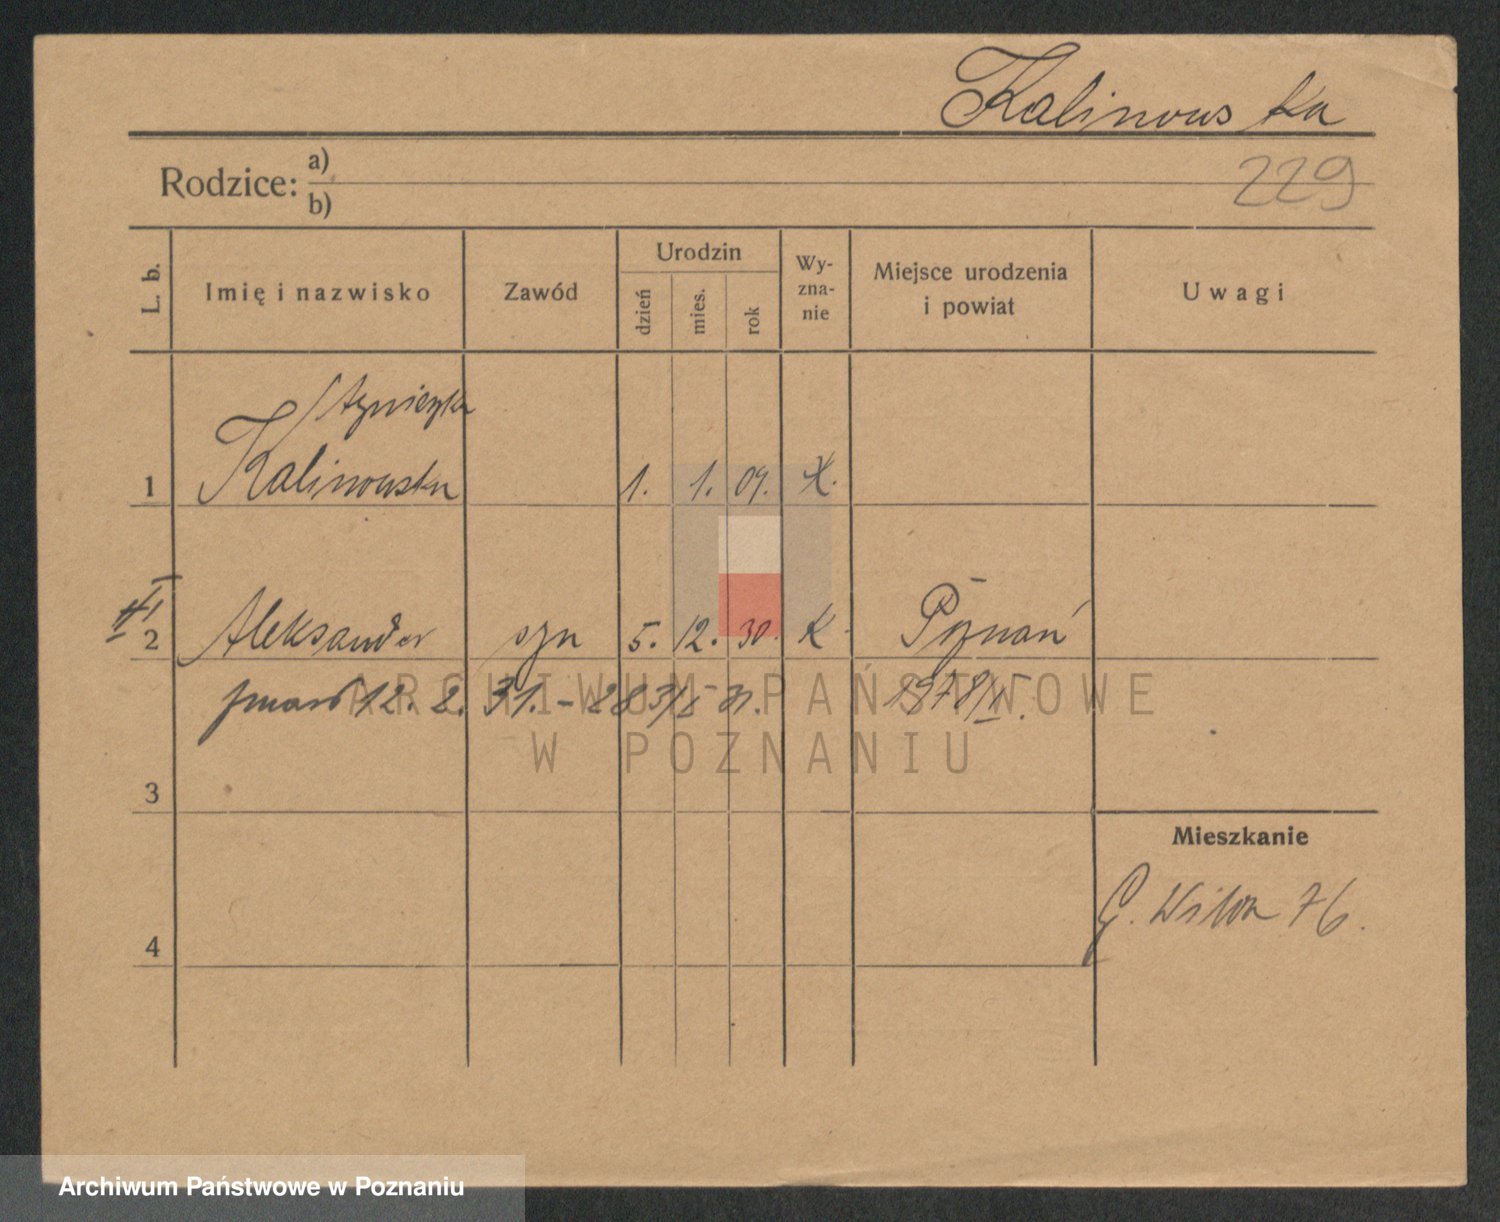 Kalinowska
Rodzice: a)
b)
229
L. b.
Imię i nazwisko
Zawód
Urodzin
dzień
mies.
rok
Wy-
zna-
nie
Miejsce urodzenia
i powiat
Uwagi
Agnieszka
1 Kalinowska 1. 1. 09. K.
2 Aleksander syn 5. 12. 30. K Poznań
zmarł 12. 2. 31. -
3
Mieszkanie
G. Wilda 76.
4
ARCHIWUM PAŃSTWOWE
W POZNANIU
Archiwum Państwowe w Poznaniu